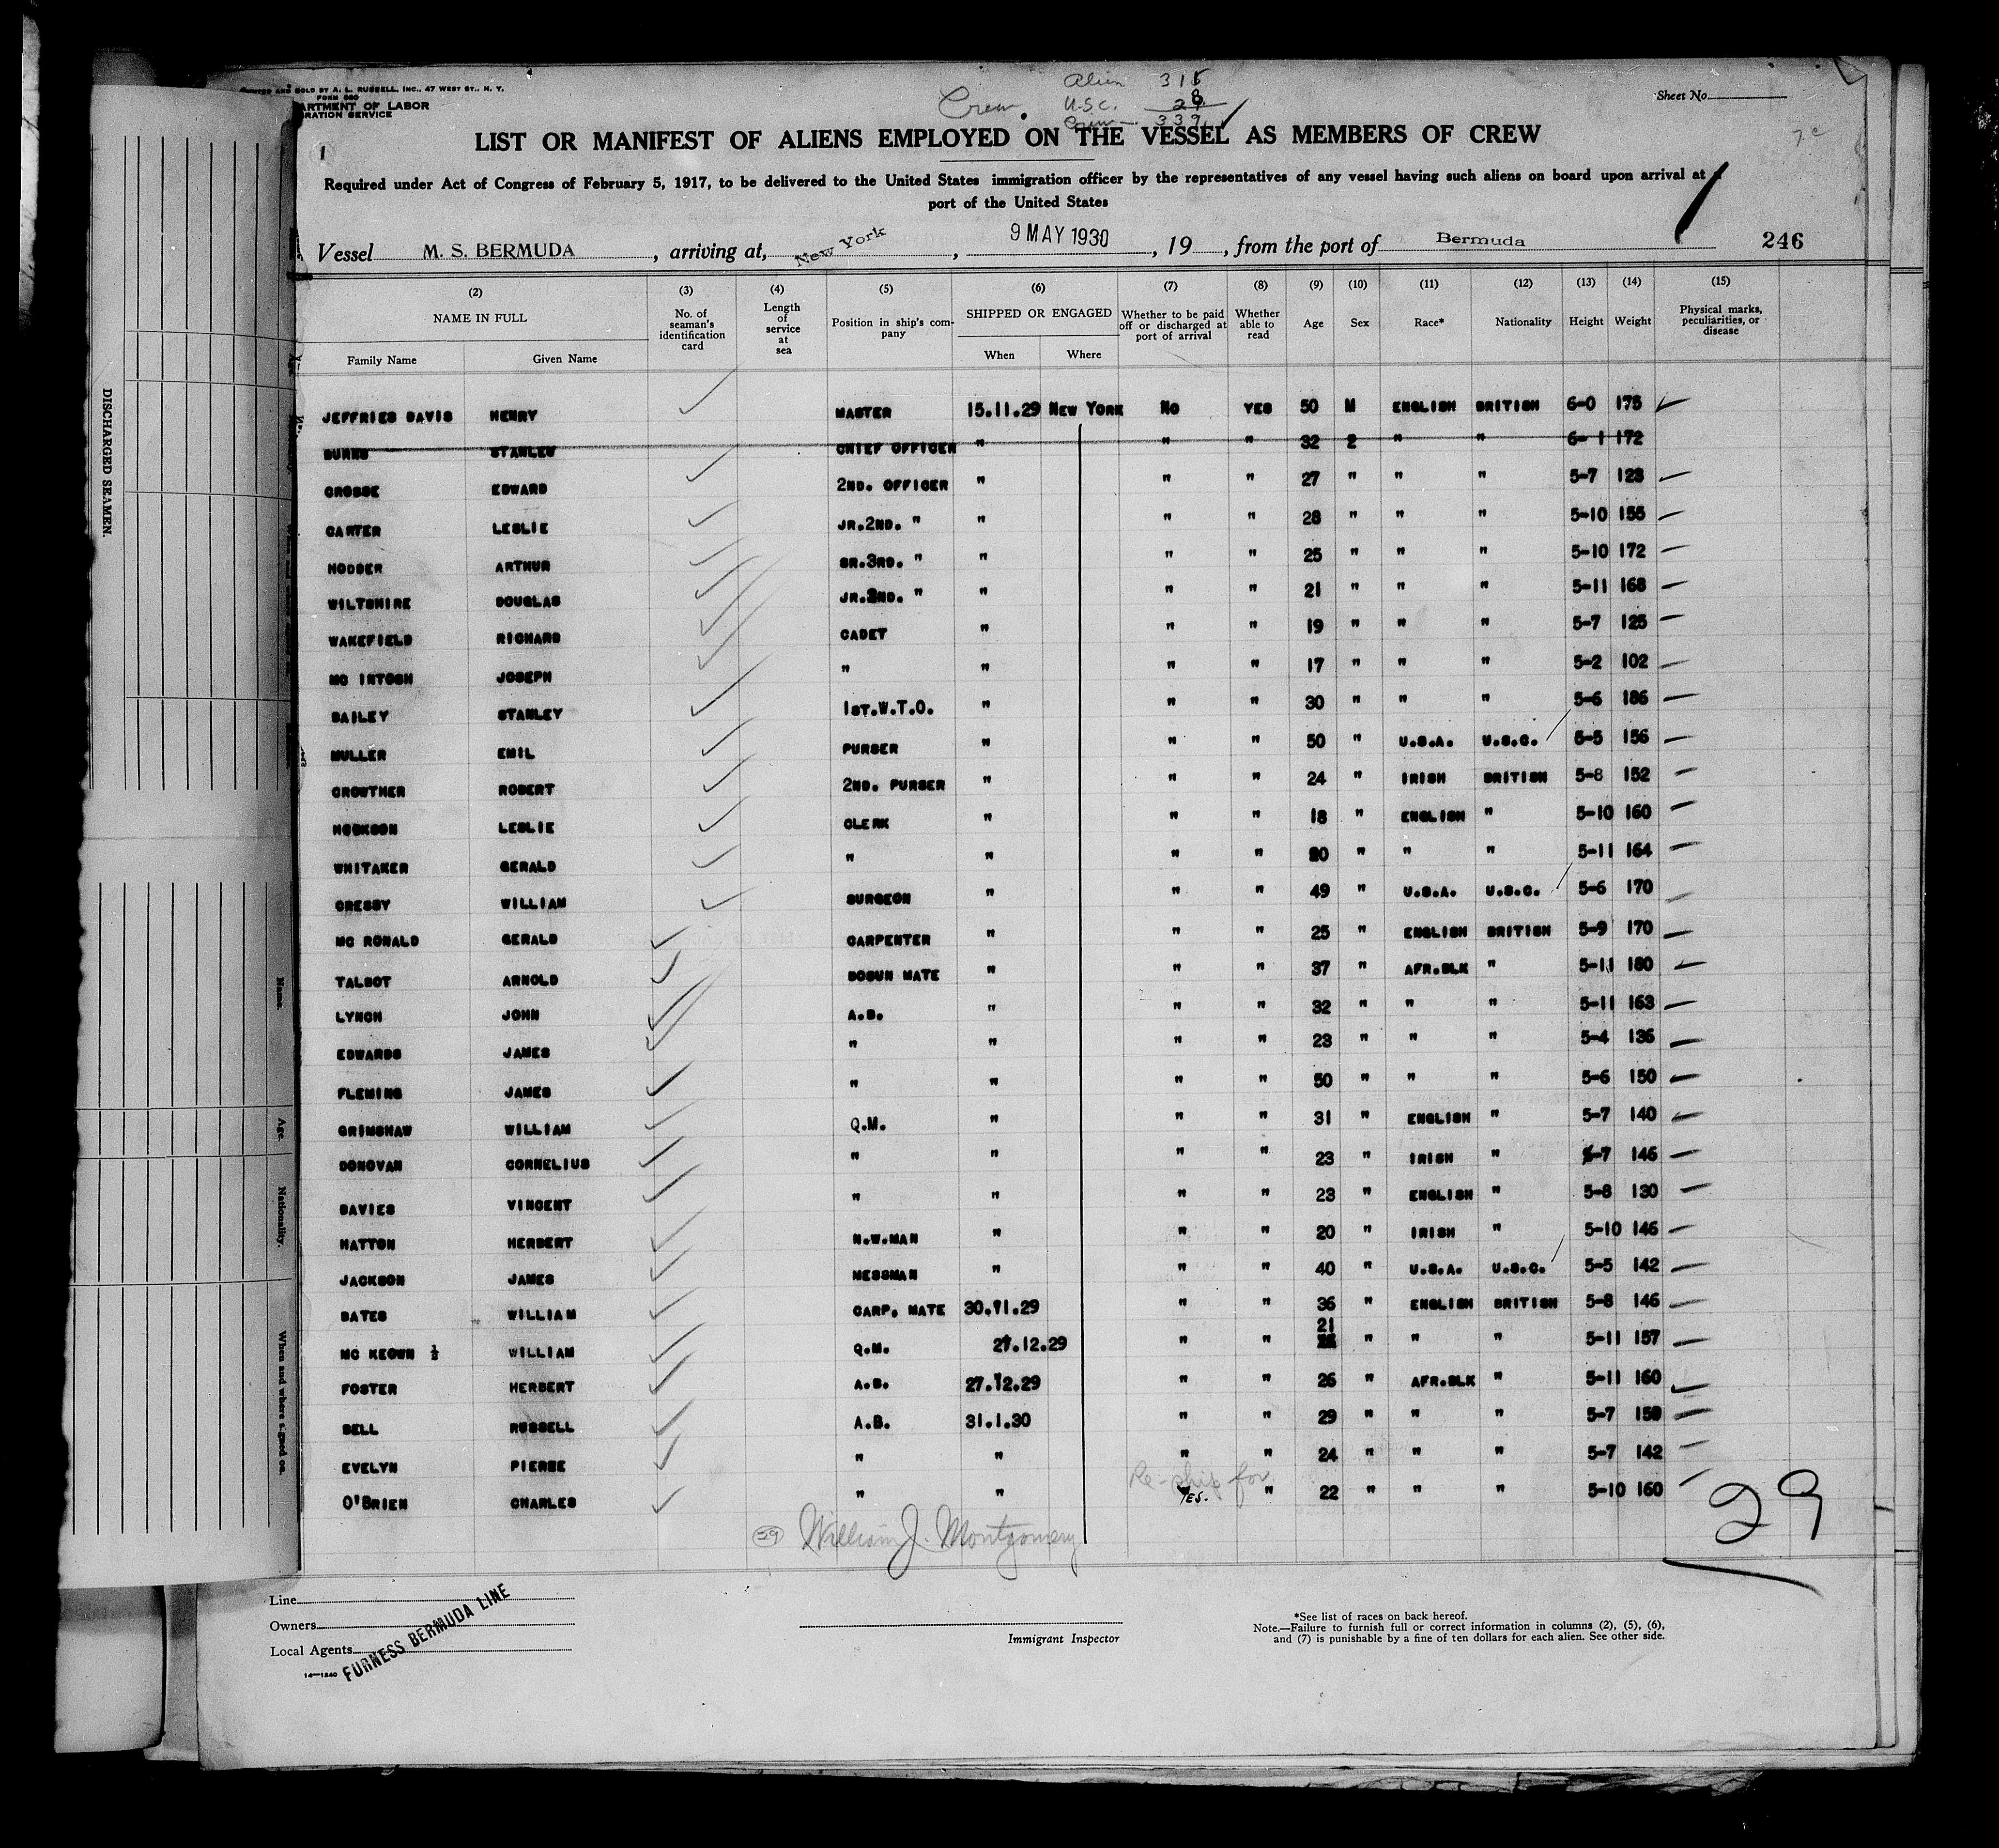 PRINTED AND SOLD BY A. L. RUSSELL, INC., 47 WEST ST., N. Y.
FORM 680
ARTMENT OF LABOR
RATION SERVICE
Crew. Alien 315
U.S.C. 28
Crew — 339 ✓
Sheet No.
LIST OR MANIFEST OF ALIENS EMPLOYED ON THE VESSEL AS MEMBERS OF CREW
1
Required under Act of Congress of February 5, 1917, to be delivered to the United States immigration officer by the representatives of any vessel having such aliens on board upon arrival at a
port of the United States
Vessel M. S. BERMUDA, arriving at, New York, 9 MAY 1930, 19, from the port of Bermuda 246
(2) (3) (4) (5) (6) (7) (8) (9) (10) (11) (12) (13) (14) (15)
NAME IN FULL No. of seaman's identification card Length of service at sea Position in ship's company SHIPPED OR ENGAGED Whether to be paid off or discharged at port of arrival Whether able to read Age Sex Race* Nationality Height Weight Physical marks, peculiarities, or disease
Family Name Given Name When Where
JEFFRIES DAVIS HENRY MASTER 15.11.29 NEW YORK NO YES 50 M ENGLISH BRITISH 6-0 175
BURNS STANLEY CHIEF OFFICER " " " 32 2 " " 6-1 172
CROSSE EDWARD 2ND. OFFICER " " " 27 " " " 5-7 123
CARTER LESLIE JR.2ND. " " " " 28 " " " 5-10 155
HODDER ARTHUR SR.3RD. " " " " 25 " " " 5-10 172
WILTSHIRE DOUGLAS JR. " " " " 21 " " " 5-11 168
WAKEFIELD RICHARD CADET " " " 19 " " " 5-7 125
MC INTOSH JOSEPH " " " " 17 " " " 5-2 102
BAILEY STANLEY 1ST.W.T.O. " " " 30 " " " 5-6 186
MULLER EMIL PURSER " " " 50 " U.S.A. U.S.C. 5-5 156
CROWTHER ROBERT 2ND. PURSER " " " 24 " IRISH BRITISH 5-8 152
HODKSON LESLIE CLERK " " " 18 " ENGLISH " 5-10 160
WHITAKER GERALD " " " " 20 " " " 5-11 164
CRESSY WILLIAM SURGEON " " " 49 " U.S.A. U.S.C. 5-6 170
MC RONALD GERALD CARPENTER " " " 25 " ENGLISH BRITISH 5-9 170
TALBOT ARNOLD BOSUN MATE " " " 37 " AFR.BLK " 5-11 180
LYNCH JOHN A.B. " " " 32 " " " 5-11 163
EDWARDS JAMES " " " " 23 " " " 5-4 136
FLEMING JAMES " " " " 50 " " " 5-6 150
GRIMSHAW WILLIAM Q.M. " " " 31 " ENGLISH " 5-7 140
DONOVAN CORNELIUS " " " " 23 " IRISH " 5-7 146
DAVIES VINCENT " " " " 23 " ENGLISH " 5-8 130
HATTON HERBERT N.W.MAN " " " 20 " IRISH " 5-10 146
JACKSON JAMES MESSMAN " " " 40 " U.S.A. U.S.C. 5-5 142
BATES WILLIAM CARP. MATE 30.11.29 " " 36 " ENGLISH BRITISH 5-8 146
MC KEOWN ½ WILLIAM Q.M. 27.12.29 " " 21 " " " 5-11 157
FOSTER HERBERT A.B. 27.12.29 " " 26 " AFR.BLK " 5-11 160
BELL RUSSELL A.B. 31.1.30 " " 29 " " " 5-7 150
EVELYN PIERRE " " " " 24 " " " 5-7 142
O'BRIEN CHARLES " " Re-ship for YES. " 22 " " " 5-10 160
29
William J. Montgomery
Line
Owners
Local Agents
FURNESS BERMUDA LINE
14—1240
Immigrant Inspector
*See list of races on back hereof.
Note.—Failure to furnish full or correct information in columns (2), (5), (6),
and (7) is punishable by a fine of ten dollars for each alien. See other side.
DISCHARGED SEAMEN.
Name.
Age.
Nationality.